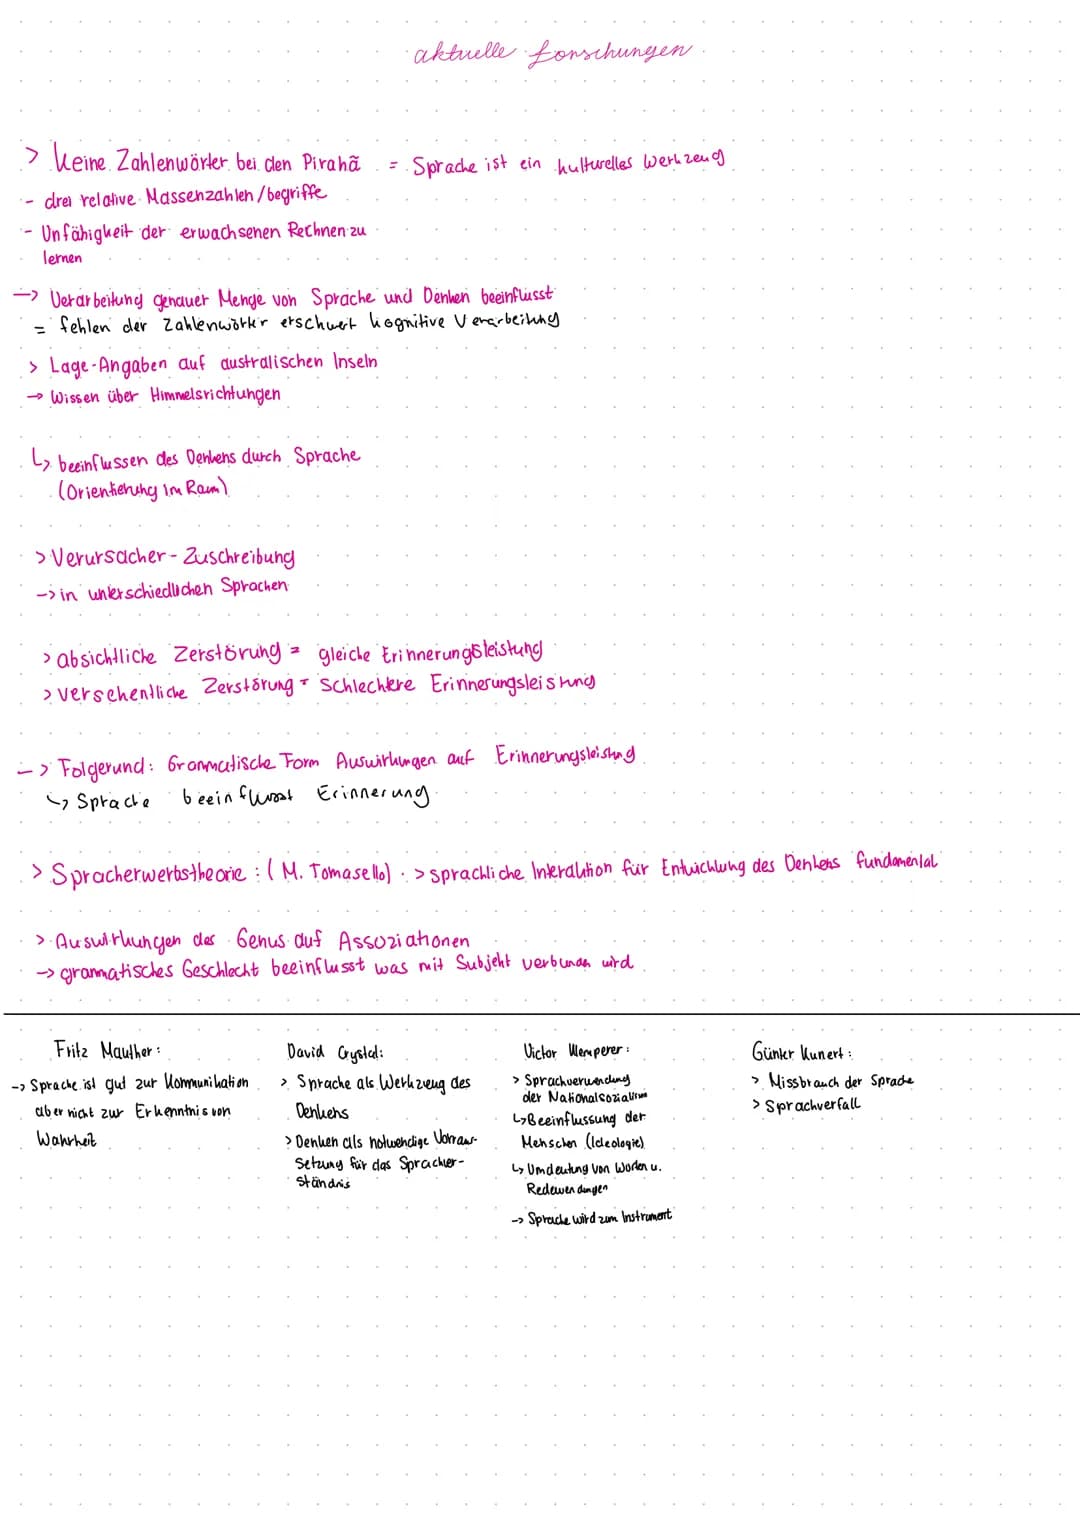 aktuelle Forschungen
> keine Zahlenwörter bei den Pirahã = Sprache ist ein kulturelles Werkzeug
- drei relative Massenzahlen/begriffe
- Unfähigkeit der erwachsenen Rechnen zu
lernen
-> Verarbeitung genauer Menge von Sprache und Denken beeinflusst
= fehlen der Zahlenwörter erschwert kognitive Verarbeitung
> Lage-Angaben auf australischen Inseln
-> Wissen über Himmelsrichtungen
↳ beeinflussen des Denkens durch Sprache
(Orientierung im Raum)
> Verursacher-Zuschreibung
-> in unterschiedlichen Sprachen
> absichtliche Zerstörung = gleiche Erinnerungsleistung
> versehentliche Zerstörung = Schlechtere Erinnerungsleistung
-> Folgerund: Grammatische Form Auswirkungen auf Erinnerungsleistung
↳ Sprache beeinflusst Erinnerung
> Spracherwerbstheorie : ( M. Tomasello) > sprachliche Interaktion für Entwicklung des Denkens fundamental
> Auswirkungen des Genus auf Assoziationen
-> grammatisches Geschlecht beeinflusst was mit Subjekt verbunden wird
Fritz Mauther:
-> Sprache ist gut zur Kommunikation
aber nicht zur Erkenntnis von
Wahrheit
David Crystal:
> Sprache als Werkzeug des
Denkens
> Denken als notwendige Vorraus-
setzung für das Sprachver-
ständnis
Victor Klemperer:
> Sprachverwendung
der Nationalsozialisten
↳ Beeinflussung der
Menschen (Ideologie)
↳ Umdeutung von Worten u.
Redewendungen
-> Sprache wird zum Instrument
Günter Kunert:
> Missbrauch der Sprache
> Sprachverfall